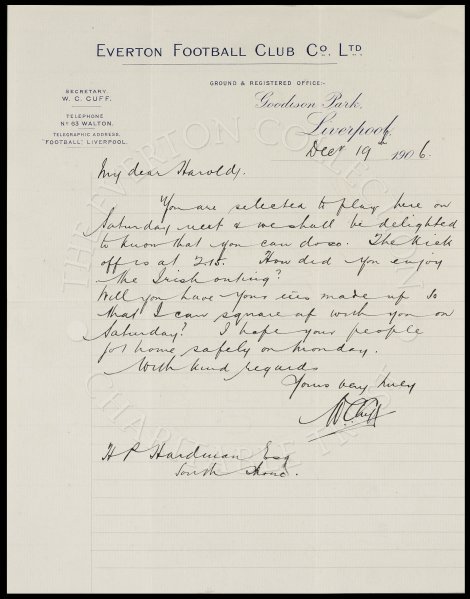 EVERTON FOOTBALL CLUB CO. LTD.
GROUND & REGISTERED OFFICE:-
SECRETARY.
W. C. CUFF.
TELEPHONE
NO 63 WALTON.
TELEGRAPHIC ADDRESS,
"FOOTBALL" LIVERPOOL.
Goodison Park,
Liverpool,
Decr 19th 1906.
My dear Harold,
You are selected to play here on
Saturday next & we shall be delighted
to know that you can do so. The Kick
off is at 2.15. How did you enjoy
the Irish outing?
Will you have your exes made up so
that I can square up with you on
Saturday? I hope your people
got home safely on Monday.
With kind regards
Yours very truly
W. C. Cuff
H P Hardman Esq
South Shore.
THE EVERTON COLLECTION
CHARITABLE TRUST